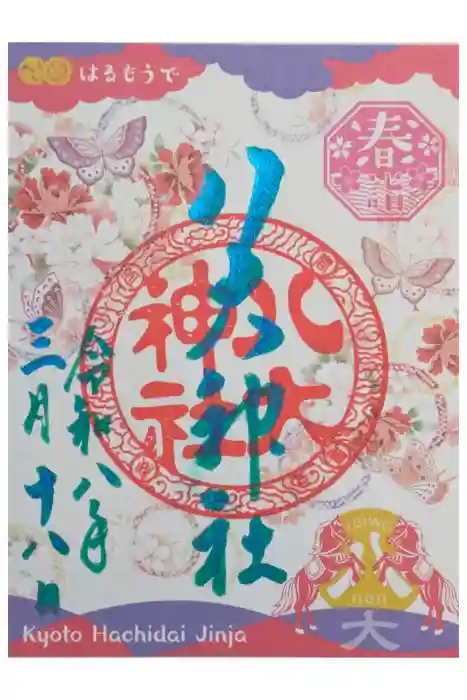 はるもうで
春詣
八大神社
八大神社
令和八年
三月十八日
reiwa
八
nen
大
Kyoto Hachidai Jinja